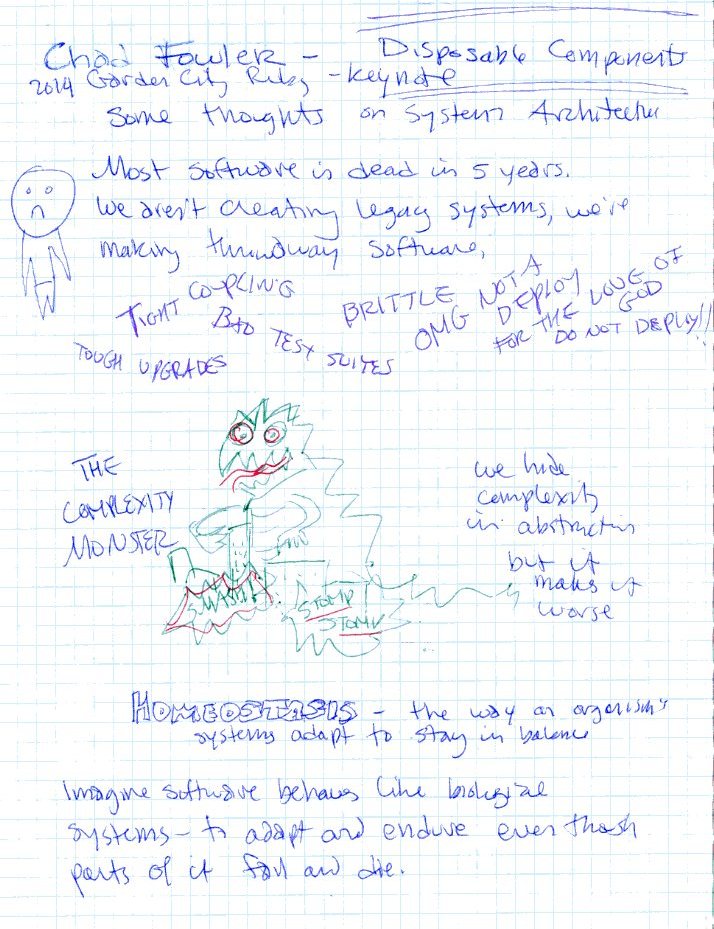 Chad Fowler - Disposable Components
2014 Garden City Ruby - Keynote
Some thoughts on System Architecture
Most software is dead in 5 years.
We aren't creating legacy systems, we're
making throwaway software,
TIGHT COUPLING
BAD TEST SUITES
BRITTLE
OMG NOT A DEPLOY
FOR THE LOVE OF GOD
DO NOT DEPLOY!!!
TOUGH UPGRADES
THE
COMPLEXITY
MONSTER
we hide
complexity
in abstraction
but it
makes it
worse
SMASH
STOMP
STOMP
HOMEOSTASIS - the way an organism's
systems adapt to stay in balance
Imagine software behaves like biological
systems - to adapt and endure even though
parts of it fail and die.